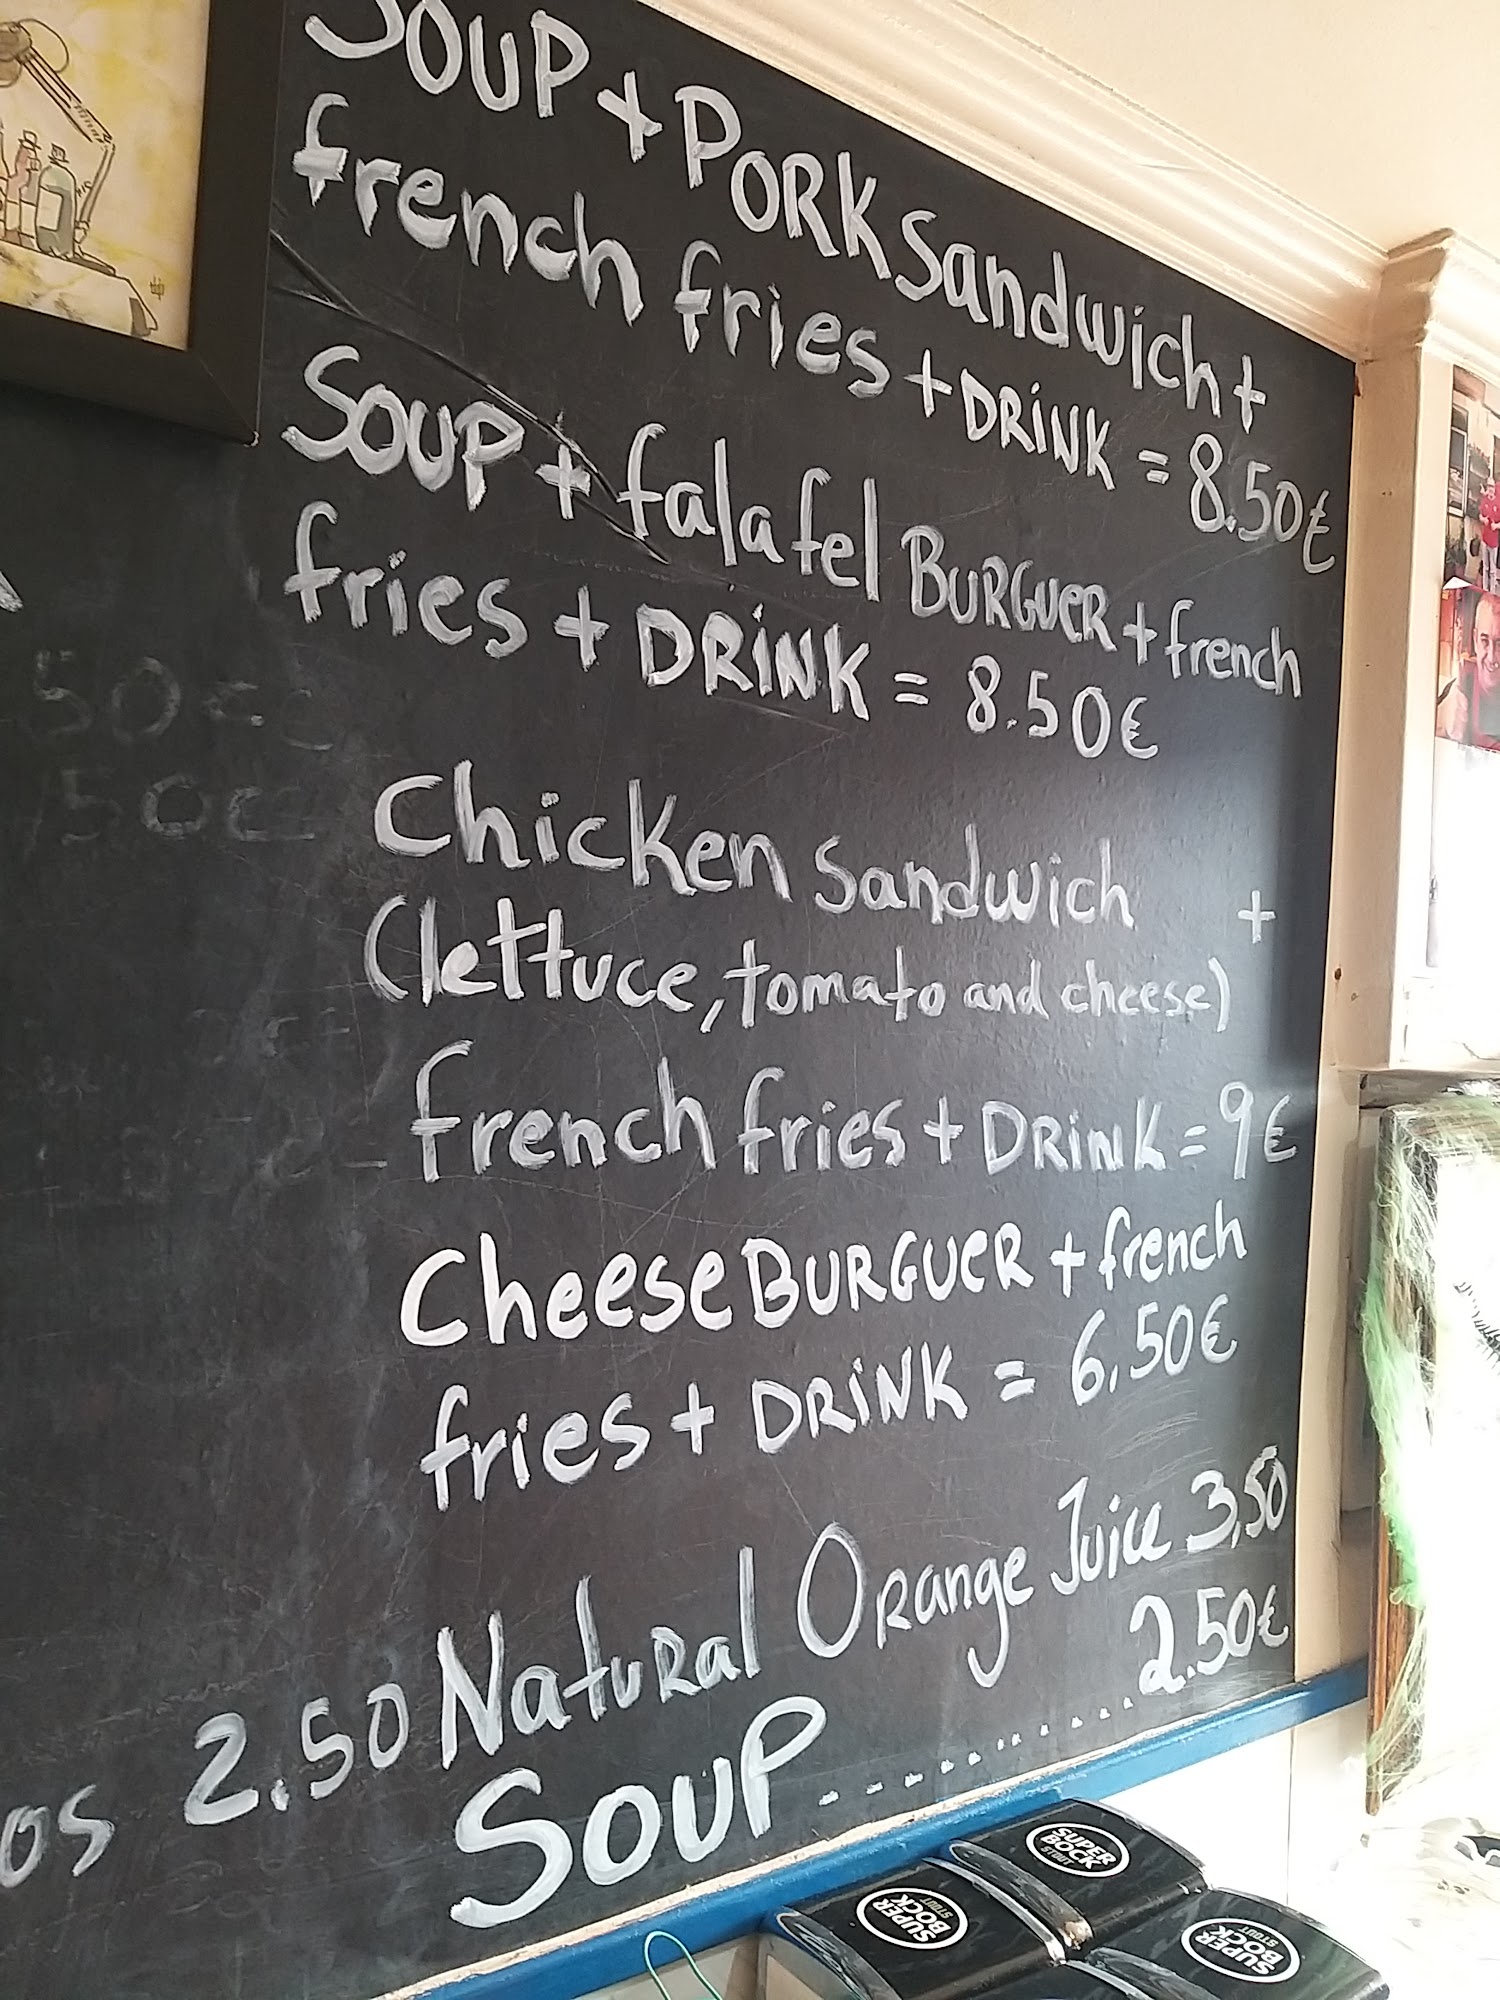 SOUP + PORK Sandwich +
french fries + DRINK = 8.50€
SOUP + falafel BURGUER + french
fries + DRINK = 8.50€
Chicken Sandwich
(lettuce, tomato and cheese) +
french fries + DRINK = 9€
CheeseBURGUER + french
fries + DRINK = 6,50€
2.50 Natural Orange Juice 3,50
os
SOUP ............ 2.50€
SUPER BOCK STOUT
SUPER BOCK STOUT
SUPER BOCK STOUT